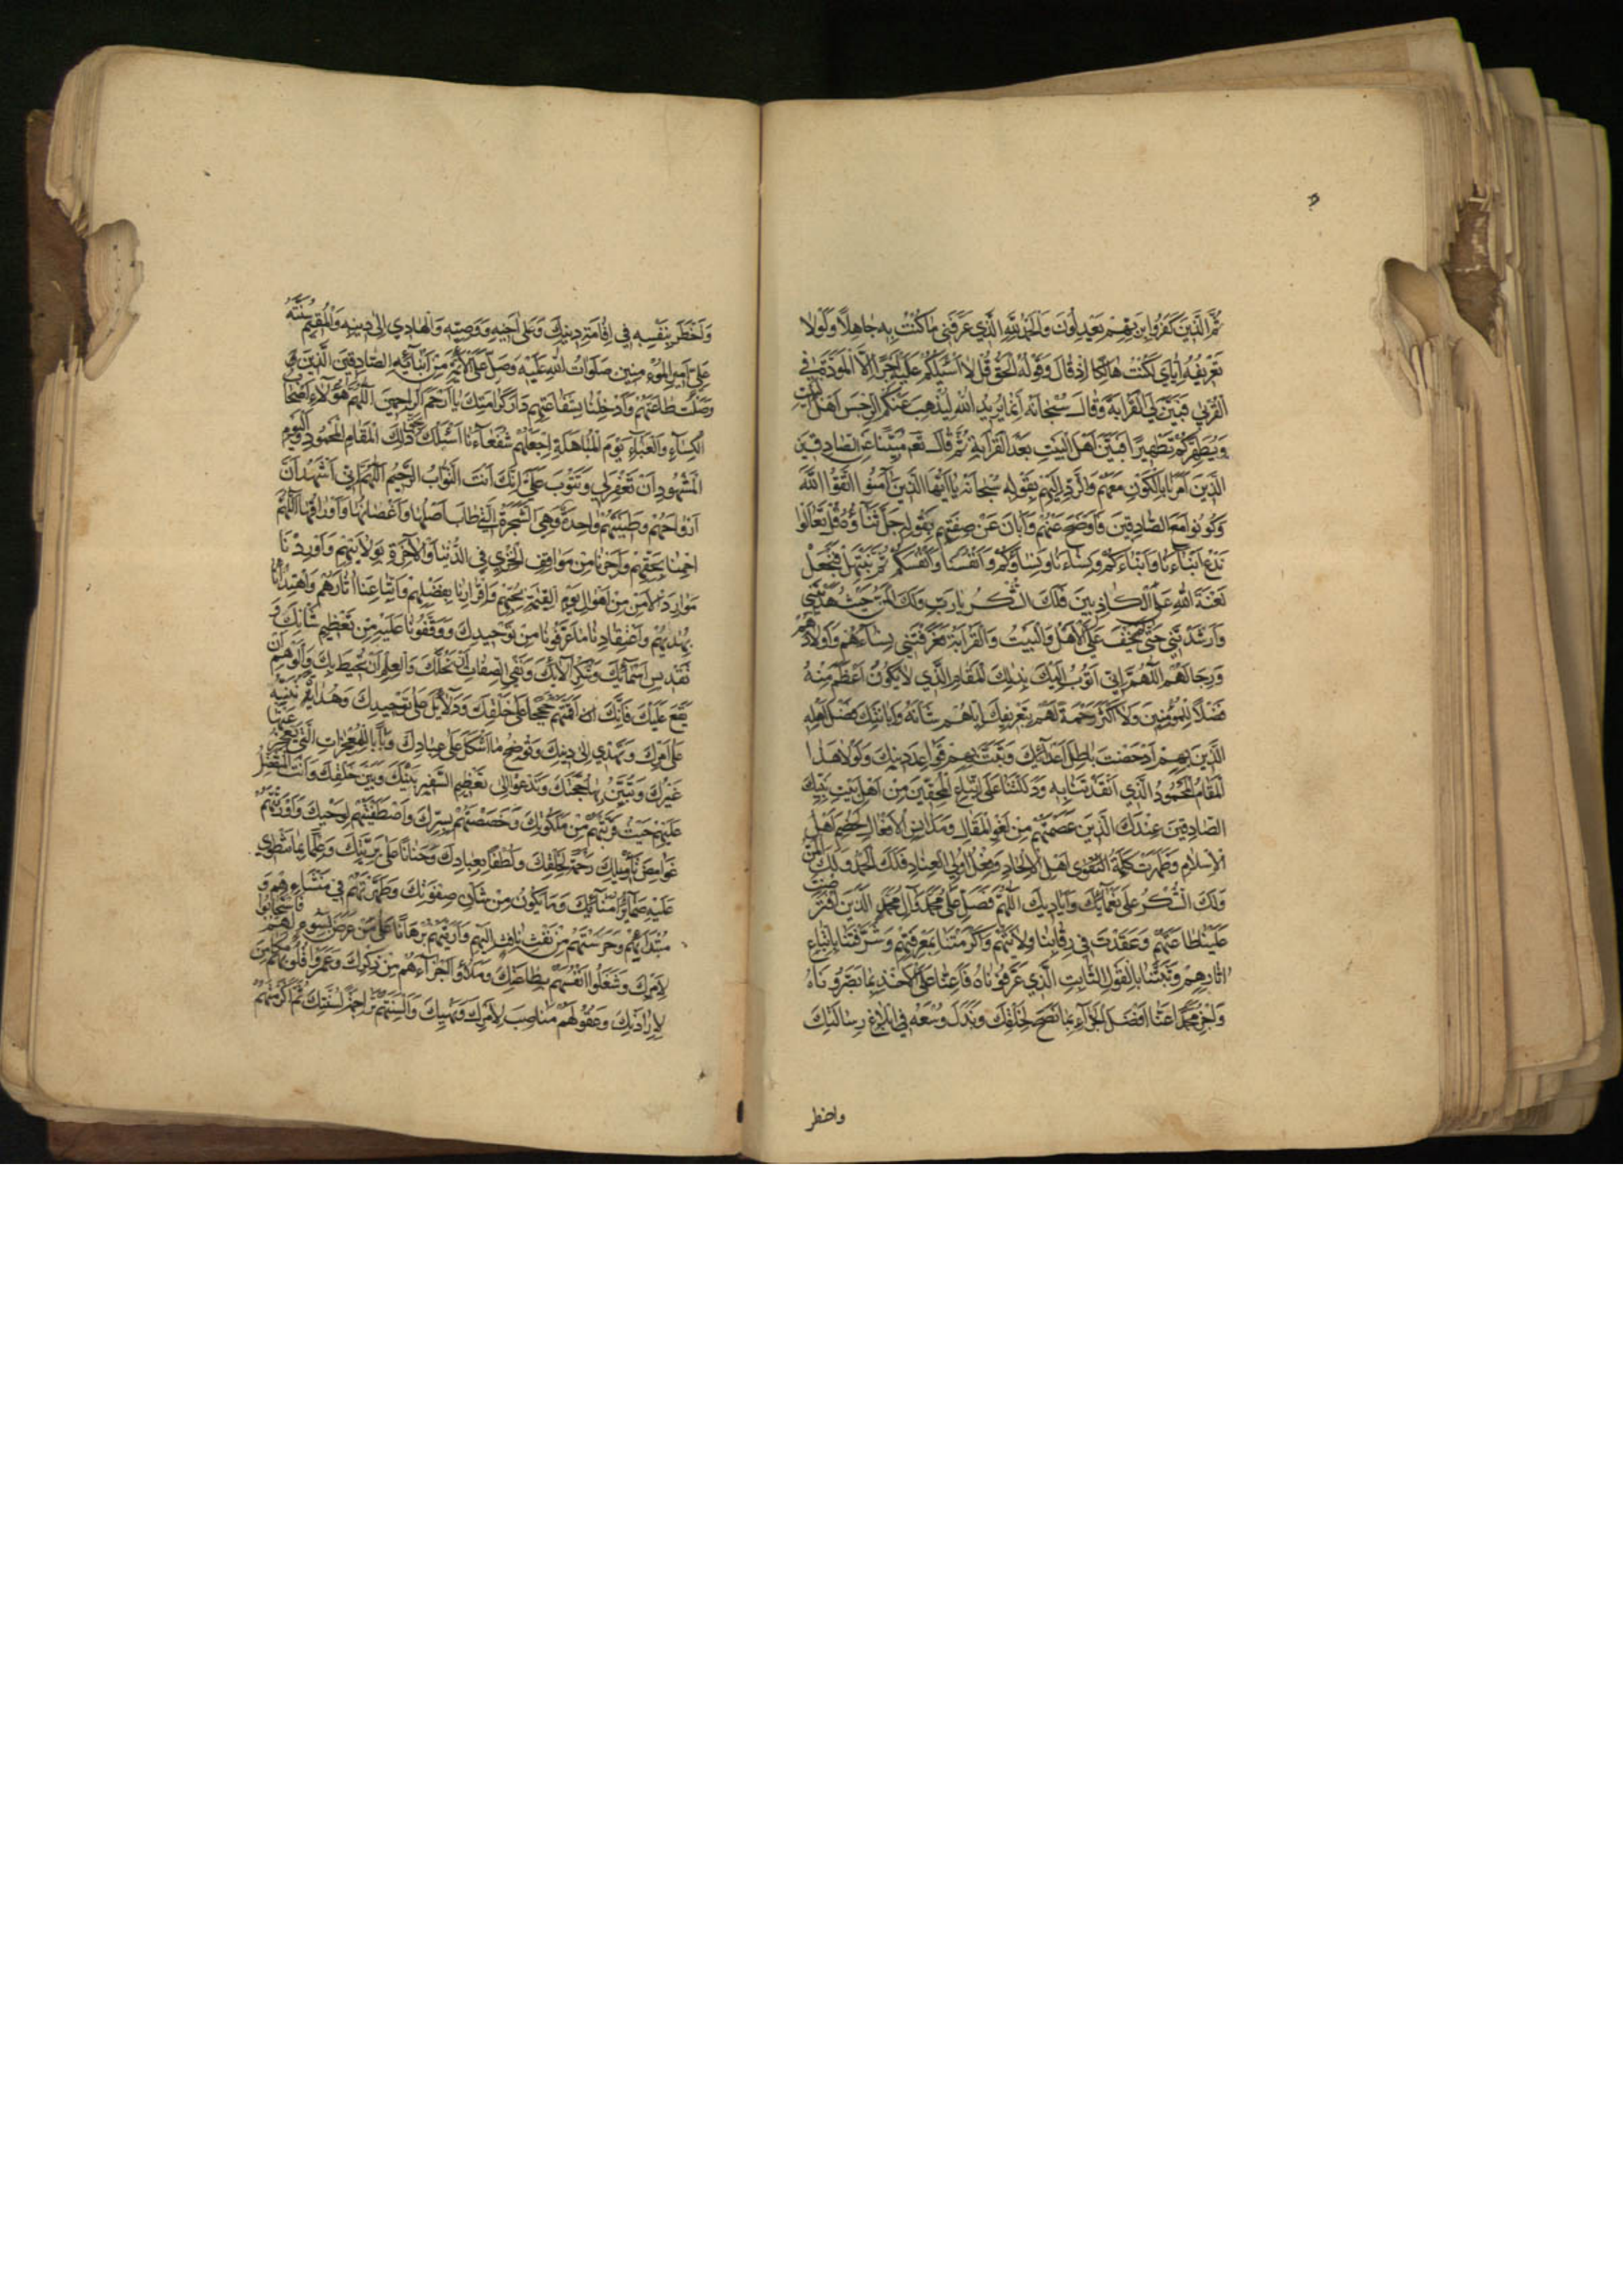 ثُمَّ الَّذِينَ كَفَرُوا بِرَبِّهِمْ يَعْدِلُونَ وَالْحَمْدُ لِلّهِ الَّذِي عَرَّفَنِي مَا كُنْتُ بِهِ جَاهِلًا وَلَوْلَا
تَعْرِيفُهُ إِيَّايَ لَكُنْتُ هَالِكًا إِذْ قَالَ وَقَوْلُهُ الْحَقُّ قُلْ لَا أَسْئَلُكُمْ عَلَيْهِ أَجْرًا إِلَّا الْمَوَدَّةَ فِي
الْقُرْبَى فَبَيَّنَ لِيَ الْقَرَابَةَ وَقَالَ سُبْحَانَهُ إِنَّمَا يُرِيدُ اللهُ لِيُذْهِبَ عَنْكُمُ الرِّجْسَ أَهْلَ الْبَيْتِ
وَيُطَهِّرَكُمْ تَطْهِيرًا فَبَيَّنَ أَهْلَ الْبَيْتِ بَعْدَ الْقَرَابَةِ ثُمَّ قَالَ تَعَالَى مُبَيِّنًا عَنِ الصَّادِقِينَ
الَّذِينَ أَمَرَنَا بِالْكَوْنِ مَعَهُمْ وَالرَّدِّ إِلَيْهِمْ بِقَوْلِهِ سُبْحَانَهُ يَا أَيُّهَا الَّذِينَ آمَنُوا اتَّقُوا اللَّهَ
وَكُونُوا مَعَ الصَّادِقِينَ فَأَوْضَحَ عَنْهُمْ وَأَبَانَ عَنْ صِفَتِهِمْ بِقَوْلِهِ جَلَّ ثَنَاؤُهُ قُلْ تَعَالَوْا
نَدْعُ أَبْنَاءَنَا وَأَبْنَاءَكُمْ وَنِسَاءَنَا وَنِسَاءَكُمْ وَأَنْفُسَنَا وَأَنْفُسَكُمْ ثُمَّ نَبْتَهِلْ فَنَجْعَلْ
لَعْنَةَ اللهِ عَلَى الْكَاذِبِينَ فَلَكَ الشُّكْرُ يَا رَبِّ وَلَكَ الْمَنُّ حَيْثُ هَدَيْتَنِي
وَأَرْشَدْتَنِي حَتَّى لَمْ يَخْفَ عَلَيَّ الْأَهْلُ وَالْبَيْتُ وَالْقَرَابَةُ فَعَرَّفْتَنِي نِسَاءَهُمْ وَأَوْلَادَهُمْ
وَرِجَالَهُمْ اللَّهُمَّ إِنِّي أَتَقَرَّبُ إِلَيْكَ بِذَلِكَ الْمَقَامِ الَّذِي لَا يَكُونُ أَعْظَمَ مِنْهُ
فَضْلًا لِلْمُؤْمِنِينَ وَلَا أَكْثَرَ رَحْمَةً لَهُمْ بِتَعْرِيفِكَ إِيَّاهُمْ شَأْنَهُ وَإِبَانَتِكَ فَضْلَ أَهْلِهِ
الَّذِينَ بِهِمْ أَدْحَضْتَ بَاطِلَ أَعْدَائِكَ وَثَبَّتَّ بِهِمْ قَوَاعِدَ دِينِكَ وَلَوْلَا هَذَا
الْمَقَامُ الْمَحْمُودُ الَّذِي أَنْقَذْتَنَا بِهِ وَدَلَلْتَنَا عَلَى اتِّبَاعِ الْمُحِقِّينَ مِنْ أَهْلِ بَيْتِ نَبِيِّكَ
الصَّادِقِينَ عَنْكَ الَّذِينَ عَصَمْتَهُمْ مِنْ لَغْوِ الْمَقَالِ وَمَدَانِسِ الْأَفْعَالِ لَخُصِمَ أَهْلُ
الْإِسْلَامِ وَظَهَرَتْ كَلِمَةُ أَهْلِ الْإِلْحَادِ وَفِعْلُ أُولِي الْعِنَادِ فَلَكَ الْحَمْدُ وَلَكَ الْمَنُّ
وَلَكَ الشُّكْرُ عَلَى نَعْمَائِكَ وَأَيَادِيكَ اللَّهُمَّ فَصَلِّ عَلَى مُحَمَّدٍ وَآلِ مُحَمَّدٍ الَّذِينَ افْتَرَضْتَ
عَلَيْنَا طَاعَتَهُمْ وَعَقَدْتَ فِي رِقَابِنَا وَلَايَتَهُمْ وَأَكْرَمْتَنَا بِمَعْرِفَتِهِمْ وَشَرَّفْتَنَا بِاتِّبَاعِ
آثَارِهِمْ وَثَبَّتَّنَا بِالْقَوْلِ الثَّابِتِ الَّذِي عَرَّفُونَاهُ فَأَعِنَّا عَلَى الْأَخْذِ بِمَا بَصَّرُونَاهُ
وَاجْزِ مُحَمَّدًا عَنَّا أَفْضَلَ الْجَزَاءِ بِمَا نَصَحَ لِخَلْقِكَ وَبَذَلَ وُسْعَهُ فِي إِبْلَاغِ رِسَالَتِكَ
واخطر
وَأَخْطَرَ بِنَفْسِهِ فِي إِقَامَةِ دِينِكَ وَعَلَى أَخِيهِ وَوَصِيِّهِ وَالْهَادِي إِلَى دِينِهِ وَالْمُقِيمِ سُنَّتَهُ
عَلِيٍّ أَمِيرِ الْمُؤْمِنِينَ صَلَوَاتُ اللهِ عَلَيْهِ وَصَلِّ عَلَى الْأَئِمَّةِ مِنْ أَبْنَائِهِ الصَّادِقِينَ الَّذِينَ
وَصَلْتَ طَاعَتَهُمْ وَأَدْخِلْنَا بِشَفَاعَتِهِمْ دَارَ كَرَامَتِكَ يَا أَرْحَمَ الرَّاحِمِينَ اللَّهُمَّ هَؤُلَاءِ أَصْحَابُ
الْكِسَاءِ وَالْعَبَاءِ يَوْمَ الْمُبَاهَلَةِ اجْعَلْهُمْ شُفَعَاءَنَا أَسْئَلُكَ بِحَقِّ ذَلِكَ الْمَقَامِ الْمَحْمُودِ وَالْيَوْمِ
الْمَشْهُودِ أَنْ تَغْفِرَ لِي وَتَتُوبَ عَلَيَّ إِنَّكَ أَنْتَ التَّوَّابُ الرَّحِيمُ اللَّهُمَّ إِنِّي أَشْهَدُ أَنَّ
أَرْوَاحَهُمْ وَطِينَتَهُمْ وَاحِدَةٌ وَهِيَ الشَّجَرَةُ الَّتِي طَابَ أَصْلُهَا وَأَغْصَانُهَا وَأَوْرَاقُهَا اللَّهُمَّ
ارْحَمْنَا بِحَقِّهِمْ وَأَجِرْنَا مِنْ مَوَاقِفِ الْخِزْيِ فِي الدُّنْيَا وَالْآخِرَةِ بِوَلَايَتِهِمْ وَأَوْرِدْنَا
مَوَارِدَ الْأَمْنِ مِنْ أَهْوَالِ يَوْمِ الْقِيمَةِ بِحُبِّهِمْ وَإِقْرَارِنَا بِفَضْلِهِمْ وَاتِّبَاعِنَا آثَارَهُمْ وَاهْتِدَائِنَا
بِهُدَاهُمْ وَاعْتِقَادِنَا مَا عَرَّفُونَا مِنْ تَوْحِيدِكَ وَوَقَّفُونَا عَلَيْهِ مِنْ تَعْظِيمِ شَأْنِكَ وَ
تَقْدِيسِ أَسْمَائِكَ وَشُكْرِ آلَائِكَ وَنَفْيِ الصِّفَاتِ أَنْ تَحُلَّكَ وَالْعِلْمِ أَنْ يُحِيطَ بِكَ وَالْوَهْمِ أَنْ
يَقَعَ عَلَيْكَ فَإِنَّكَ أَقَمْتَهُمْ حُجَجًا عَلَى خَلْقِكَ وَدَلَائِلَ عَلَى تَوْحِيدِكَ وَهُدَاةً تُنَبِّهُ
عَلَى أَمْرِكَ وَتَهْدِي إِلَى دِينِكَ وَتُوضِحُ مَا أَشْكَلَ عَلَى عِبَادِكَ وَبَابًا لِلْمُعْجِزَاتِ الَّتِي يَعْجِزُ عَنْهَا
غَيْرُكَ وَبِهَا تُبَيِّنُ حُجَّتَكَ وَتَدْعُو إِلَى تَعْظِيمِ السَّفِيرِ بَيْنَكَ وَبَيْنَ خَلْقِكَ وَأَنْتَ الْمُتَفَضِّلُ
عَلَيْهِمْ حَيْثُ قَرَّبْتَهُمْ مِنْ مَلَكُوتِكَ وَخَصَصْتَهُمْ بِسِرِّكَ وَاصْطَفَيْتَهُمْ لِوَحْيِكَ وَأَوْرَثْتَهُمْ
غَوَامِضَ تَأْوِيلِكَ رَحْمَةً لِخَلْقِكَ وَلُطْفًا بِعِبَادِكَ وَحَنَانًا عَلَى بَرِيَّتِكَ وَعِلْمًا بِمَا تَنْطَوِي
عَلَيْهِ ضَمَائِرُ أُمَنَائِكَ وَمَا يَكُونُ مِنْ شَأْنِ صَفْوَتِكَ وَطَهَّرْتَهُمْ فِي مَنْشَائِهِمْ وَ
مُبْتَدَائِهِمْ وَحَرَسْتَهُمْ مِنْ نَفْثِ نَافِثٍ إِلَيْهِمْ وَأَرَيْتَهُمْ بُرْهَانًا عَلَى مَنْ عَرَضَ بِسُوءٍ لَهُمْ فَاسْتَجَابُوا
لِأَمْرِكَ وَشَغَلُوا أَنْفُسَهُمْ بِطَاعَتِكَ وَمَلَأُوا أَجْزَاءَهُمْ مِنْ ذِكْرِكَ وَعَمَّرُوا قُلُوبَهُمْ
لِإِرَادَتِكَ وَعُقُولَهُمْ مَنَاصِبَ لِأَمْرِكَ وَنَهْيِكَ وَأَلْسِنَتَهُمْ تَرَاجِمَةً لِسُنَّتِكَ ثُمَّ أَكْرَمْتَهُمْ